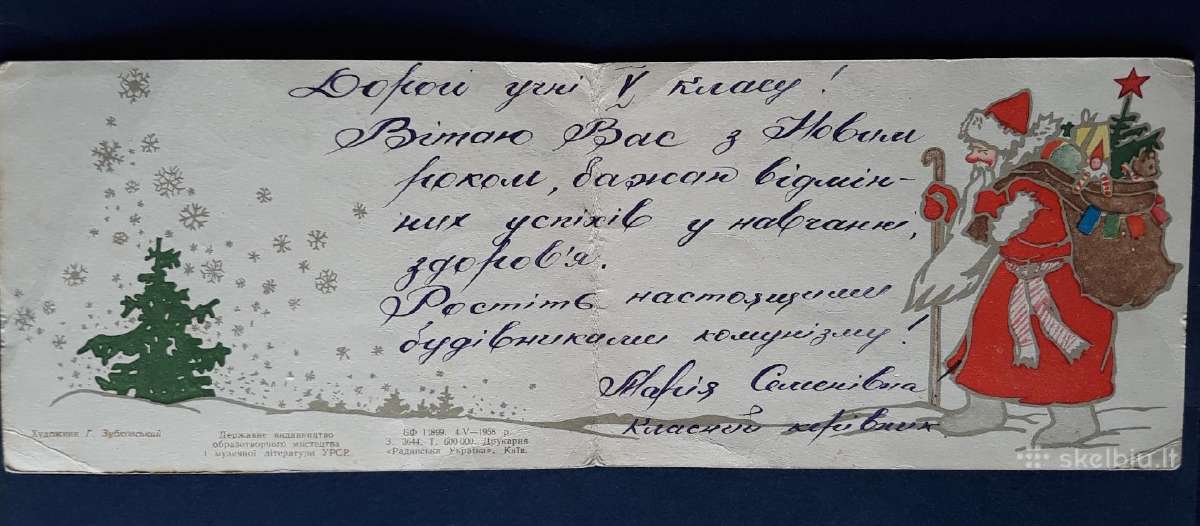 Дорогі учні V класу!
Вітаю Вас з Новим
роком, бажаю відмін-
них успіхів у навчанні,
здоров'я.
Ростіть настоящими
будівниками комунізму!
Марія Семенівна
класний керівник
Художник Г. Зубковський
Державне видавництво
образотворчого мистецтва
і музичної літератури УРСР.
БФ 11899. 4-V-1958 р.
З. 3644. Т. 600 000. Друкарня
«Радянська Україна», Київ.
skelbiu.lt